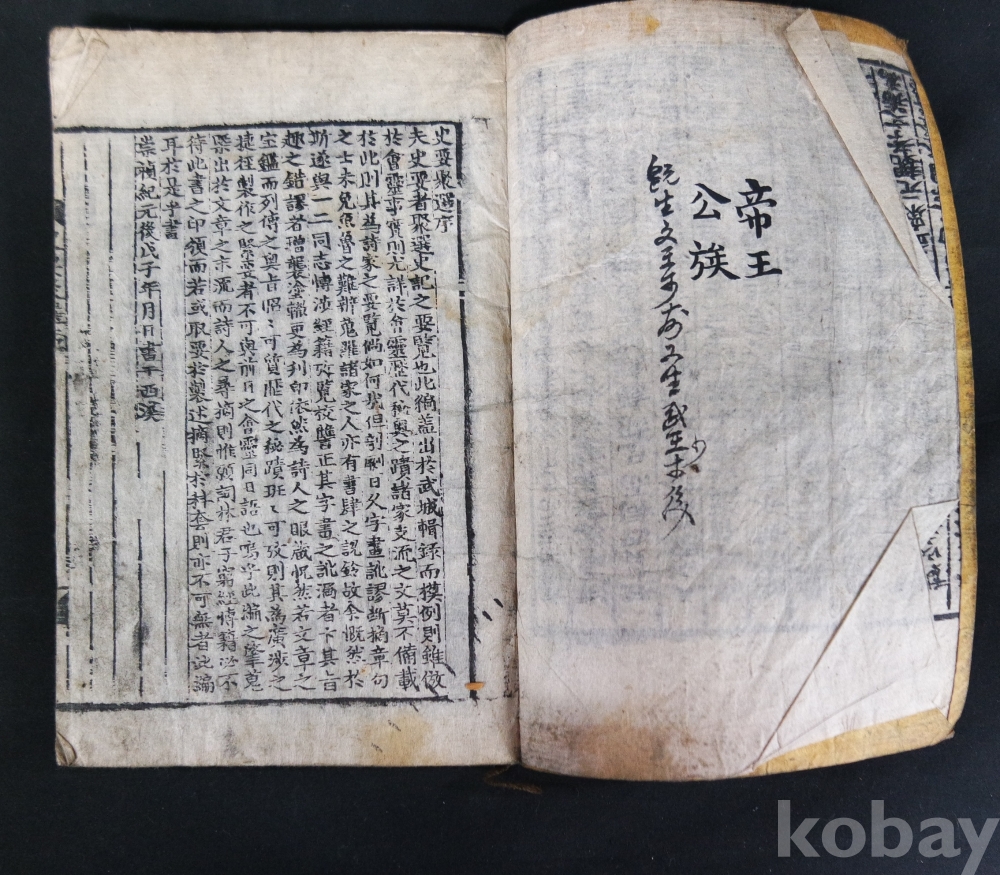 帝王
公族
史要聚選序
夫史要者聚選史記之要覽也此編盖出於武城輯錄而模例則雖倣
於會靈事實則尤詳於會靈歷代秘奧之蹟諸家支流之文莫不備載
於此則其為詩家之要覽倘如何哉但剞劂日久字畫訛謬斷摘章句
之士未免魚魯之難辨蒐羅諸家之人亦有書肆之説鈴故余慨然於
斯遂與一二同志博涉經籍攷覽校讐正其字畫之訛漏者卞其旨
趣之錯謬者增襲塗轍更為刋印依然為詩人之眼藏怳然若文章之
宝鑑而列傳之奧旨昭〻可質歷代之秘蹟班〻可攷則其為廣涉之
捷徑製作之緊要者不可與前日之會靈同日語也嗚乎此編之肇蒐
槩出於文章之末流而詩人之尋摘則惟願詞林君子窮經博籍必不
待此書之印領而若或取要於製述摘緊於科套則亦不可無者此編
耳於是乎書
崇禎紀元後戊子年月日書于西溪
kobay